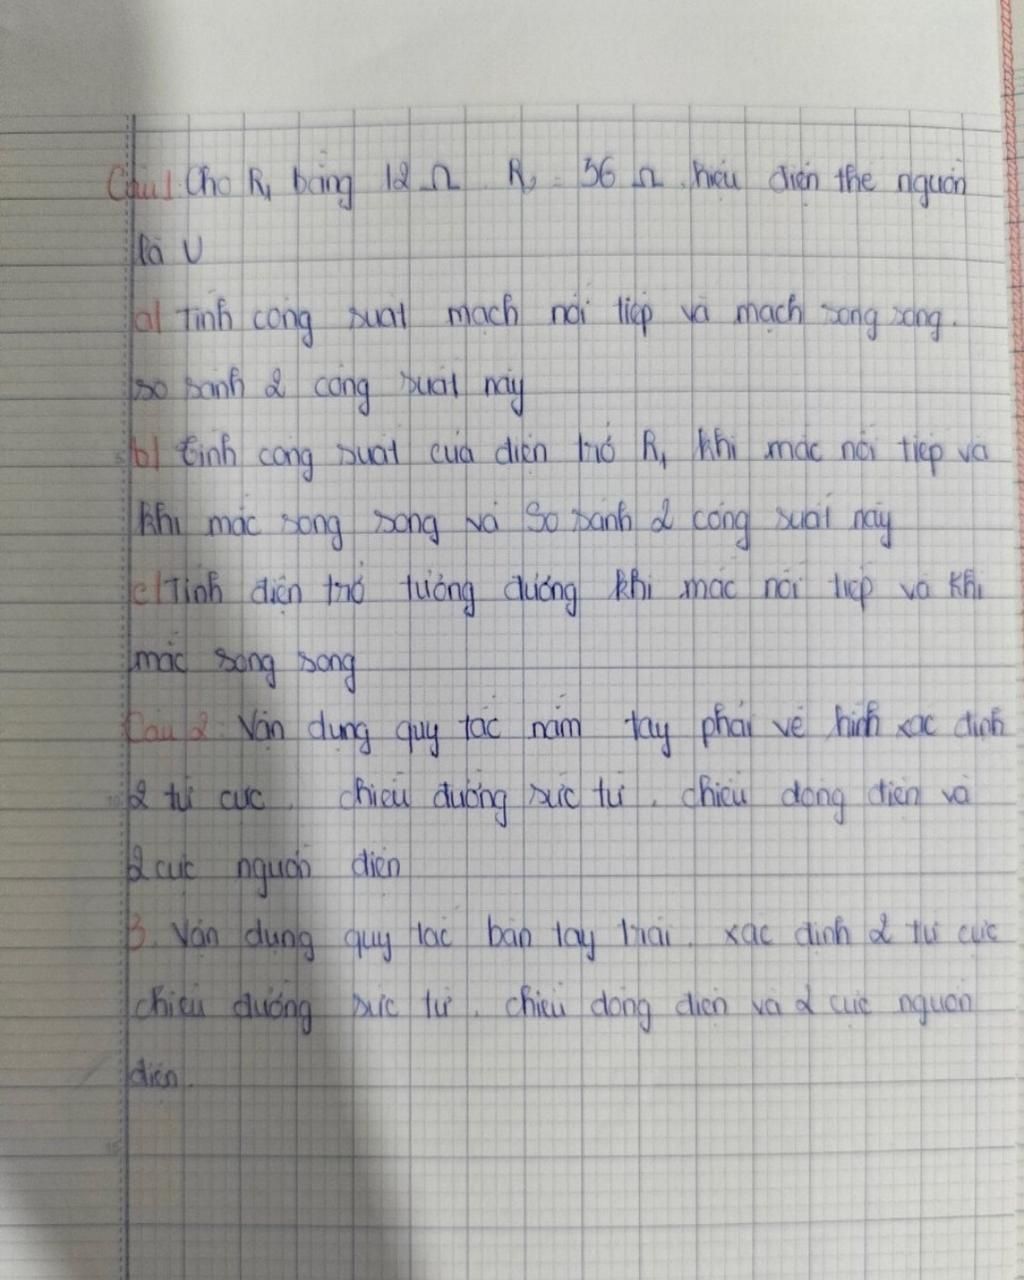 Câu 1. Cho R₁ bằng 12 Ω R₂ = 36 Ω. hiệu điện thế nguồn
là U
a) Tính công suất mạch nối tiếp và mạch song song.
so sánh 2 công suất này
b) tính công suất của điện trở R₁ khi mắc nối tiếp và
khi mắc song song và So sánh 2 công suất này
c) Tính điện trở tương đương khi mắc nối tiếp và khi
mắc song song
Câu 2. Vận dụng quy tắc nắm tay phải vẽ hình xác định
2 từ cực, chiều đường sức từ, chiều dòng điện và
2 cực nguồn điện
3. Vận dụng quy tắc bàn tay trái, xác định 2 từ cực
chiều đường sức từ, chiều dòng điện và 2 cực nguồn
điện.